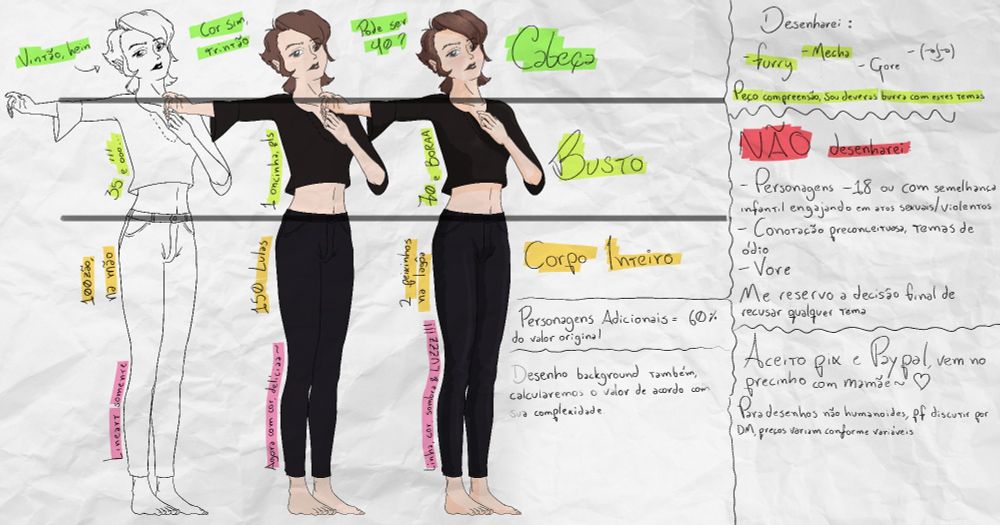 Vintão, hein
Cor sim,
trintão
Pode ser
40?
Cabeça
35 e ooo...
1 oncinha, pls
70 e BORAA
Busto
100zão,
na mão
150 Lulas
2 peixinhos
na lagoa
Corpo Inteiro
Lineart somente
Agora com cor, delíciaa~
Linha, cor, sombra & LUZZZ!!!
Personagens Adicionais = 60%
do valor original
Desenho background também,
calcularemos o valor de acordo com
sua complexidade
Desenharei :
- furry
- Mecha
- Gore
Peço compreensão, sou deveras burra com estes temas
NÃO desenharei
- Personagens -18 ou com semelhança
infantil engajando em atos sexuais/violentos
- Conotação preconceituosa, temas de
ódio
- Vore
Me reservo a decisão final de
recusar qualquer tema
Aceito pix e Paypal, vem no
precinho com mamãe~ ♡
Para desenhos não humanoides, pf discutir por
DM, preços variam conforme variáveis